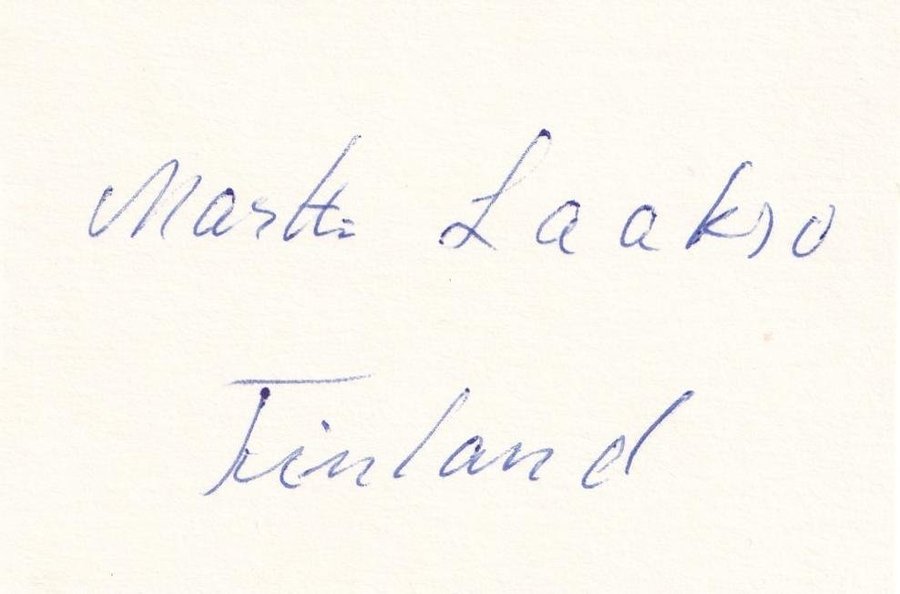 Martti Laakso
Finland